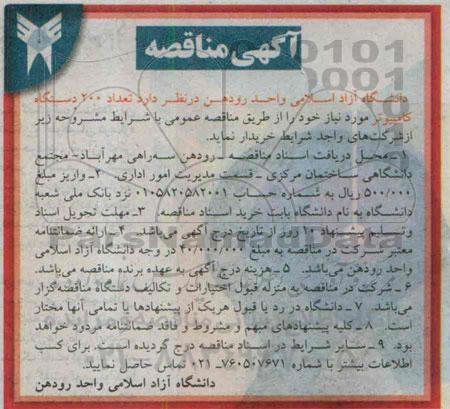 آگهی مناقصه
دانشگاه آزاد اسلامی واحد رودهن درنظر دارد تعداد ۲۰۰ دستگاه
کامپیوتر مورد نیاز خود را از طریق مناقصه عمومی با شرایط مشروحه زیر
ازشرکت‌های واجد شرایط خریدار نماید.
۱ـ محل دریافت اسناد مناقصه ـ رودهن سه‌راهی مهرآباد- مجتمع
دانشگاهی ساختمان مرکزی ـ قسمت مدیریت امور اداری. ۲ـ واریز مبلغ
۵۰۰/۰۰۰ ریال به شماره حساب ۰۱۰۵۸۲۰۵۸۲۰۰۱ نزد بانک ملی شعبه
دانشگاه به نام دانشگاه بابت خرید اسناد مناقصه. ۳ـ مهلت تحویل اسناد
وتسلیم پیشنهاد ۱۰ روز از تاریخ درج آگهی می‌باشد. ۴ـ ارائه ضمانتنامه
معتبر شرکت در مناقصه به مبلغ ۴۰/۰۰۰/۰۰۰ در وجه دانشگاه آزاد اسلامی
واحد رودهن می‌باشد. ۵ ـ هزینه درج آگهی به عهده برنده مناقصه می‌باشد.
۶ ـ شرکت در مناقصه به منزله قبول اختیارات و تکالیف دستگاه مناقصه‌گزار
می‌باشد. ۷ ـ دانشگاه در رد یا قبول هریک از پیشنهادها یا تمامی آنها مختار
است. ۸ ـ کلیه پیشنهادهای مبهم و مشروط و فاقد ضمانتنامه مردود خواهد
بود. ۹ ـ سایر شرایط در اسناد مناقصه درج گردیده است. برای کسب
اطلاعات بیشتر با شماره ۷۶۰۵۰۷۶۷۱ـ ۰۲۱ تماس حاصل نمایید.
دانشگاه آزاد اسلامی واحد رودهن